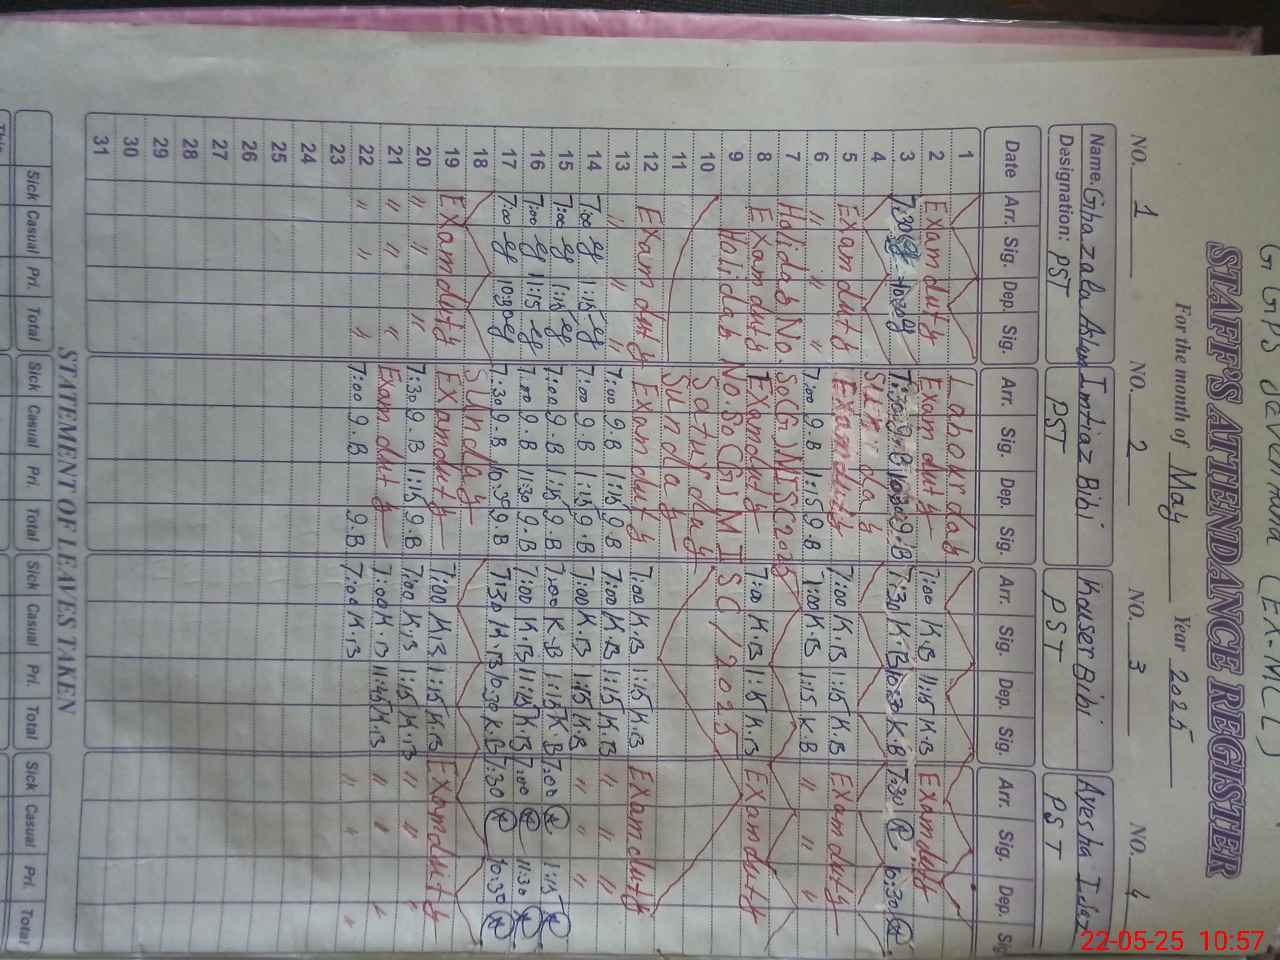 STAFF'S ATTENDANCE REGISTER
For the month of May Year 2025
NO. 1 NO. 2 NO. 3 NO. 4
Name. Ghazala Imtiaz Bibi Kouser Bibi Ayesha
Designation: PST PST PST PST
Date Arr. Sig. Dep. Sig. Arr. Sig. Dep. Sig. Arr. Sig. Dep. Sig. Arr. Sig. Dep.
1 Labour day
2 Exam duty Exam duty 7:00 K.B 1:15 K.B Exam duty
3 7:30 10:30 7:30 9.B 10:30 9.B 7:30 K.B 10:30 K.B 7:30 10:30
4 Sunday
5 Exam duty Exam duty 7:00 K.B 1:15 K.B Exam duty
6 " " 7:00 9.B 1:15 9.B 7:00 K.B 1:15 K.B " " "
7 Holiday No. SOCG.MISC 2025
8 Exam duty Exam duty 7:00 K.B 1:15 K.B Exam duty
9 Holiday No SOCG.MISC/2025
10 Saturday
11 Sunday
12 Exam duty Exam duty 7:00 K.B 1:15 K.B Exam duty
13 " " " 7:00 9.B 1:15 9.B 7:00 K.B 1:15 K.B " " "
14 7:00 1:15 7:00 9.B 1:15 9.B 7:00 K.B 1:15 K.B " " "
15 7:00 1:15 7:00 9.B 1:15 9.B 7:00 K.B 1:15 K.B 7:00 1:15
16 7:00 11:15 7:00 9.B 11:30 9.B 7:00 K.B 11:15 K.B 7:00 11:30
17 7:00 10:30 7:30 9.B 10:30 9.B 7:30 K.B 10:30 K.B 7:30 10:30
18 Sunday
19 Exam duty Exam duty 7:00 K.B 1:15 K.B Exam duty
20 " " " 7:30 9.B 1:15 9.B 7:00 K.B 1:15 K.B " " "
21 " " " Exam duty 7:00 K.B 11:45 K.B " " "
22 " " " 7:00 9.B 9.B 7:00 K.B " " "
23
24
25
26
27
28
29
30
31
STATEMENT OF LEAVES TAKEN
Sick Casual Pri. Total Sick Casual Pri. Total Sick Casual Pri. Total Sick Casual Pri. Total
22-05-25 10:57